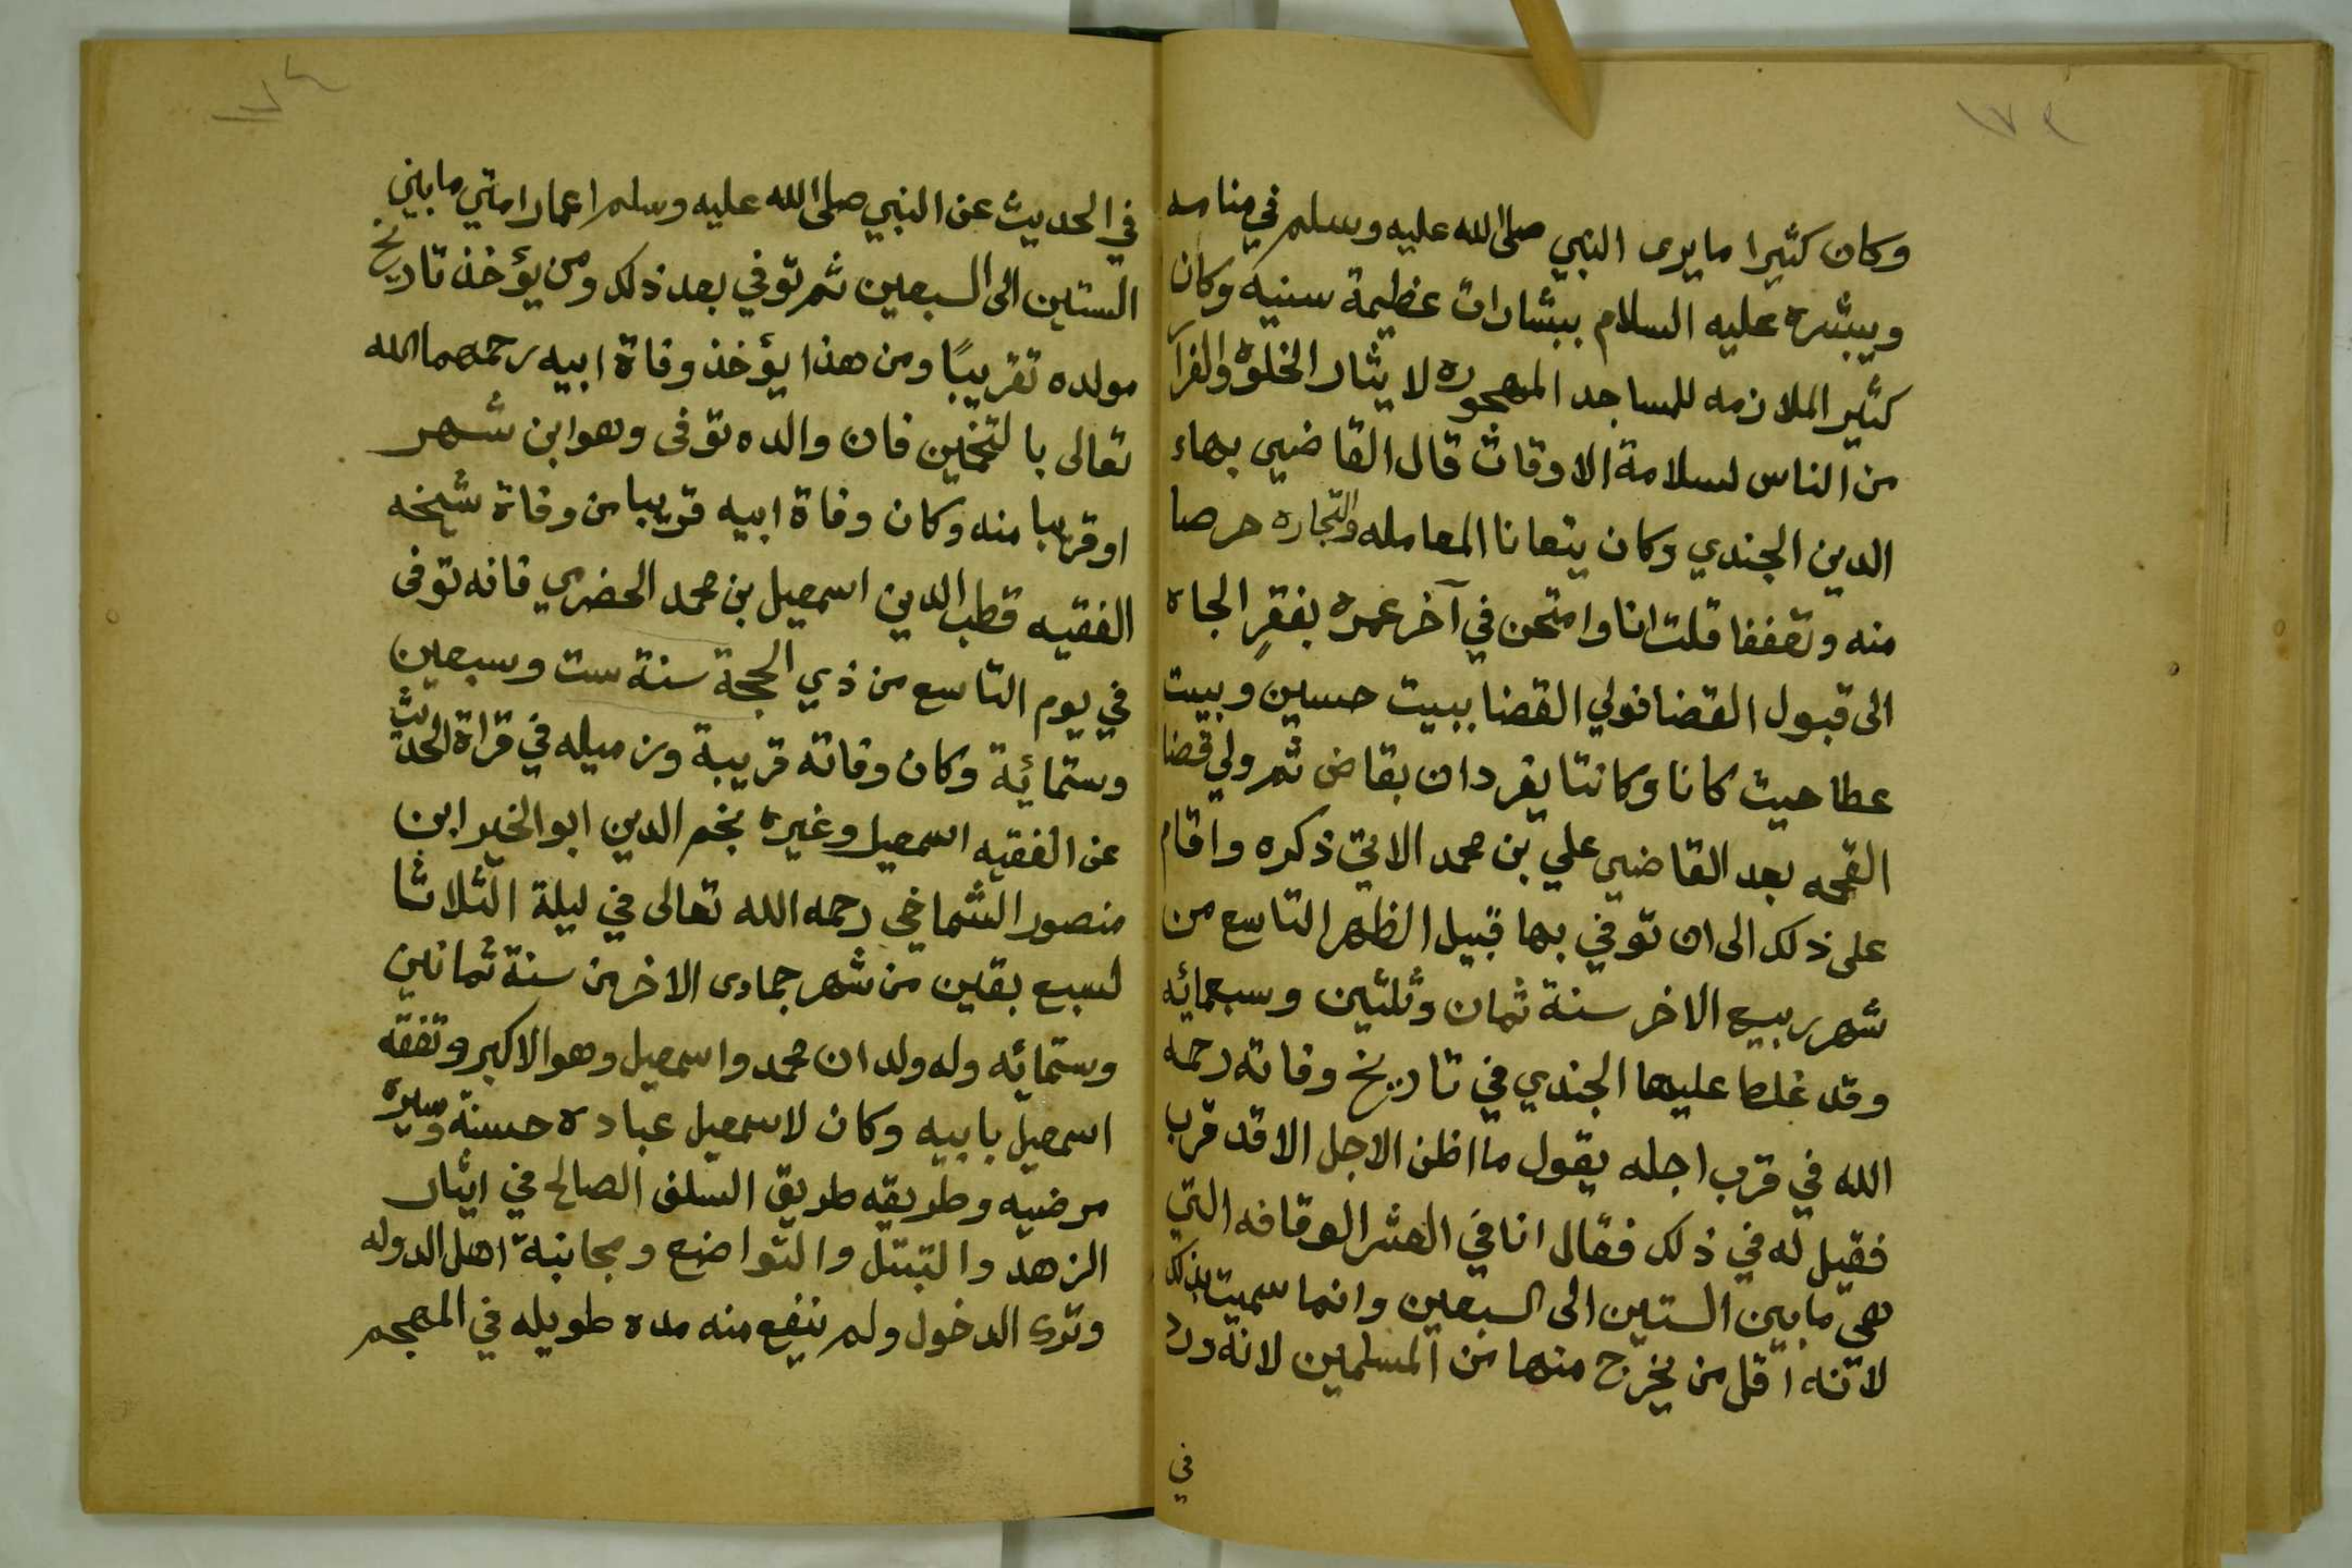 وكان كثيرا ما يرى النبي صلى الله عليه وسلم في منامه
ويبشره عليه السلام ببشارات عظيمة سنيه وكان
كثير الملازمه للمساجد المهجوره لايثار الخلوة والفرار
من الناس لسلامة الاوقات قال القاضي بهاء
الدين الجندي وكان يتعانا المعامله والتجاره حرصا
منه وتعففا قلت انا وامتحن في آخر عمره بفقرٍ الجاه
الى قبول القضا فولي القضا ببيت حسين وبيت
عطا حيث كانا وكانتا يفردان بقاض ثم ولي قضا
القحمه بعد القاضي علي بن محمد الاتي ذكره واقام
على ذلك الى ان توفي بها قبيل الظهر التاسع من
شهر ربيع الاخر سنة ثمان وثلثين وسبعمائه
وقد غلط عليها الجندي في تاريخ وفاته رحمه
الله في قرب اجله يقول ما اظن الاجل الا قد قرب
فقيل له في ذلك فقال انا في العشر الوقافه التي
هي ما بين الستين الى السبعين وانما سميت بذلك
لانه اقل من يخرج منها من المسلمين لانه ورد
في
في الحديث عن النبي صلى الله عليه وسلم اعمار امتي ما بين
الستين الى السبعين ثم توفي بعد ذلك ومن يؤخذ تاريخ
مولده تقريبًا ومن هذا يؤخذ وفاة ابيه رحمهما الله
تعالى بالتخمين فان والده توفى وهو ابن شهر
او قريبا منه وكان وفاة ابيه قريبا من وفاة شيخه
الفقيه قطب الدين اسمعيل بن محمد الحضرمي فانه توفى
في يوم التاسع من ذي الحجة سنة ست وسبعين
وستمائة وكان وفاته قريبة وزميله في قراة الحديث
عن الفقيه اسمعيل وغيره نجم الدين ابو الخير ابن
منصور الشماخي رحمه الله تعالى في ليلة الثلاثا
لسبع بقين من شهر جمادى الاخر من سنة ثمانين
وستمائه وله ولدان محمد واسمعيل وهو الاكبر وتفقه
اسمعيل بابيه وكان لاسمعيل عباده حسنة وسيره
مرضيه وطريقه طريق السلف الصالح في ايثار
الزهد والتبتل والتواضع ومجانبة اهل الدوله
وترى الدخول ولم ننفع منه مده طويله في المهجم